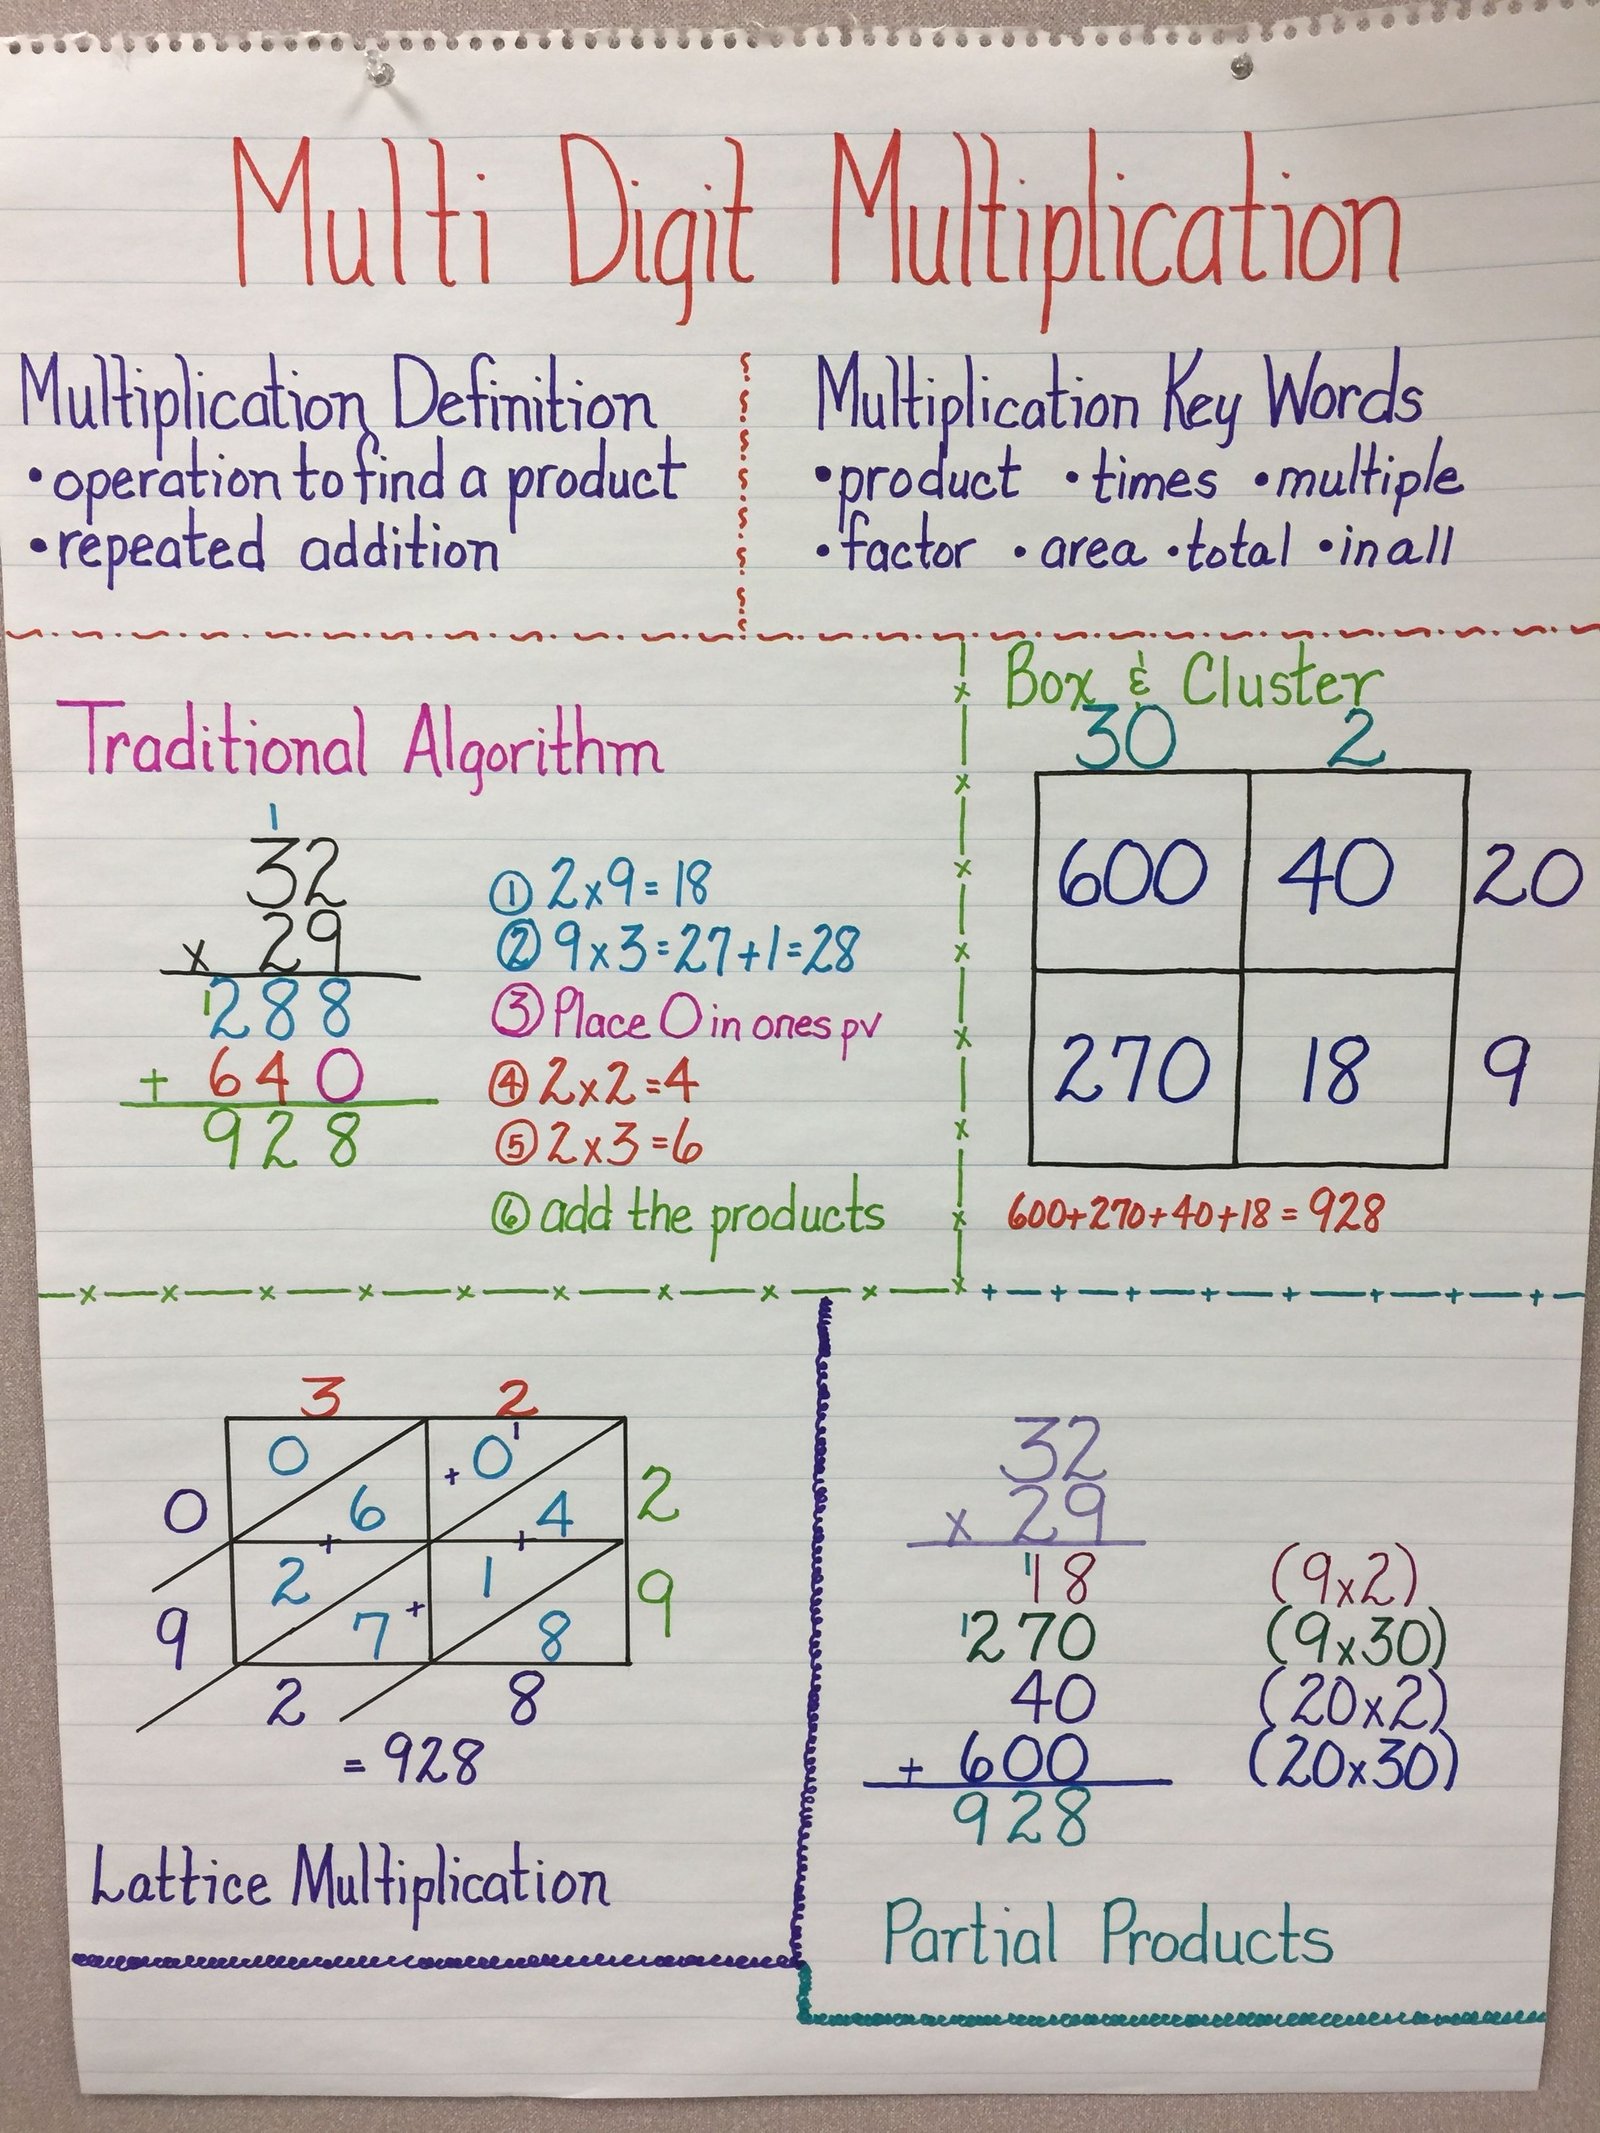 Multi Digit Multiplication
Multiplication Definition
• operation to find a product
• repeated addition
Multiplication Key Words
• product • times • multiple
• factor • area • total • in all
Traditional Algorithm
1
32
x 29
1288
+ 640
928
① 2x9=18
② 9x3=27+1=28
③ Place 0 in ones pv
④ 2x2=4
⑤ 2x3=6
⑥ add the products
Box & Cluster
30 2
600 40 20
270 18 9
600+270+40+18=928
3 2
0 + 0 1 2
0 6 4
+ +
2 1 9
9 7 + 8
2 8
= 928
Lattice Multiplication
32
x 29
1 18 (9x2)
1270 (9x30)
40 (20x2)
+ 600 (20x30)
928
Partial Products